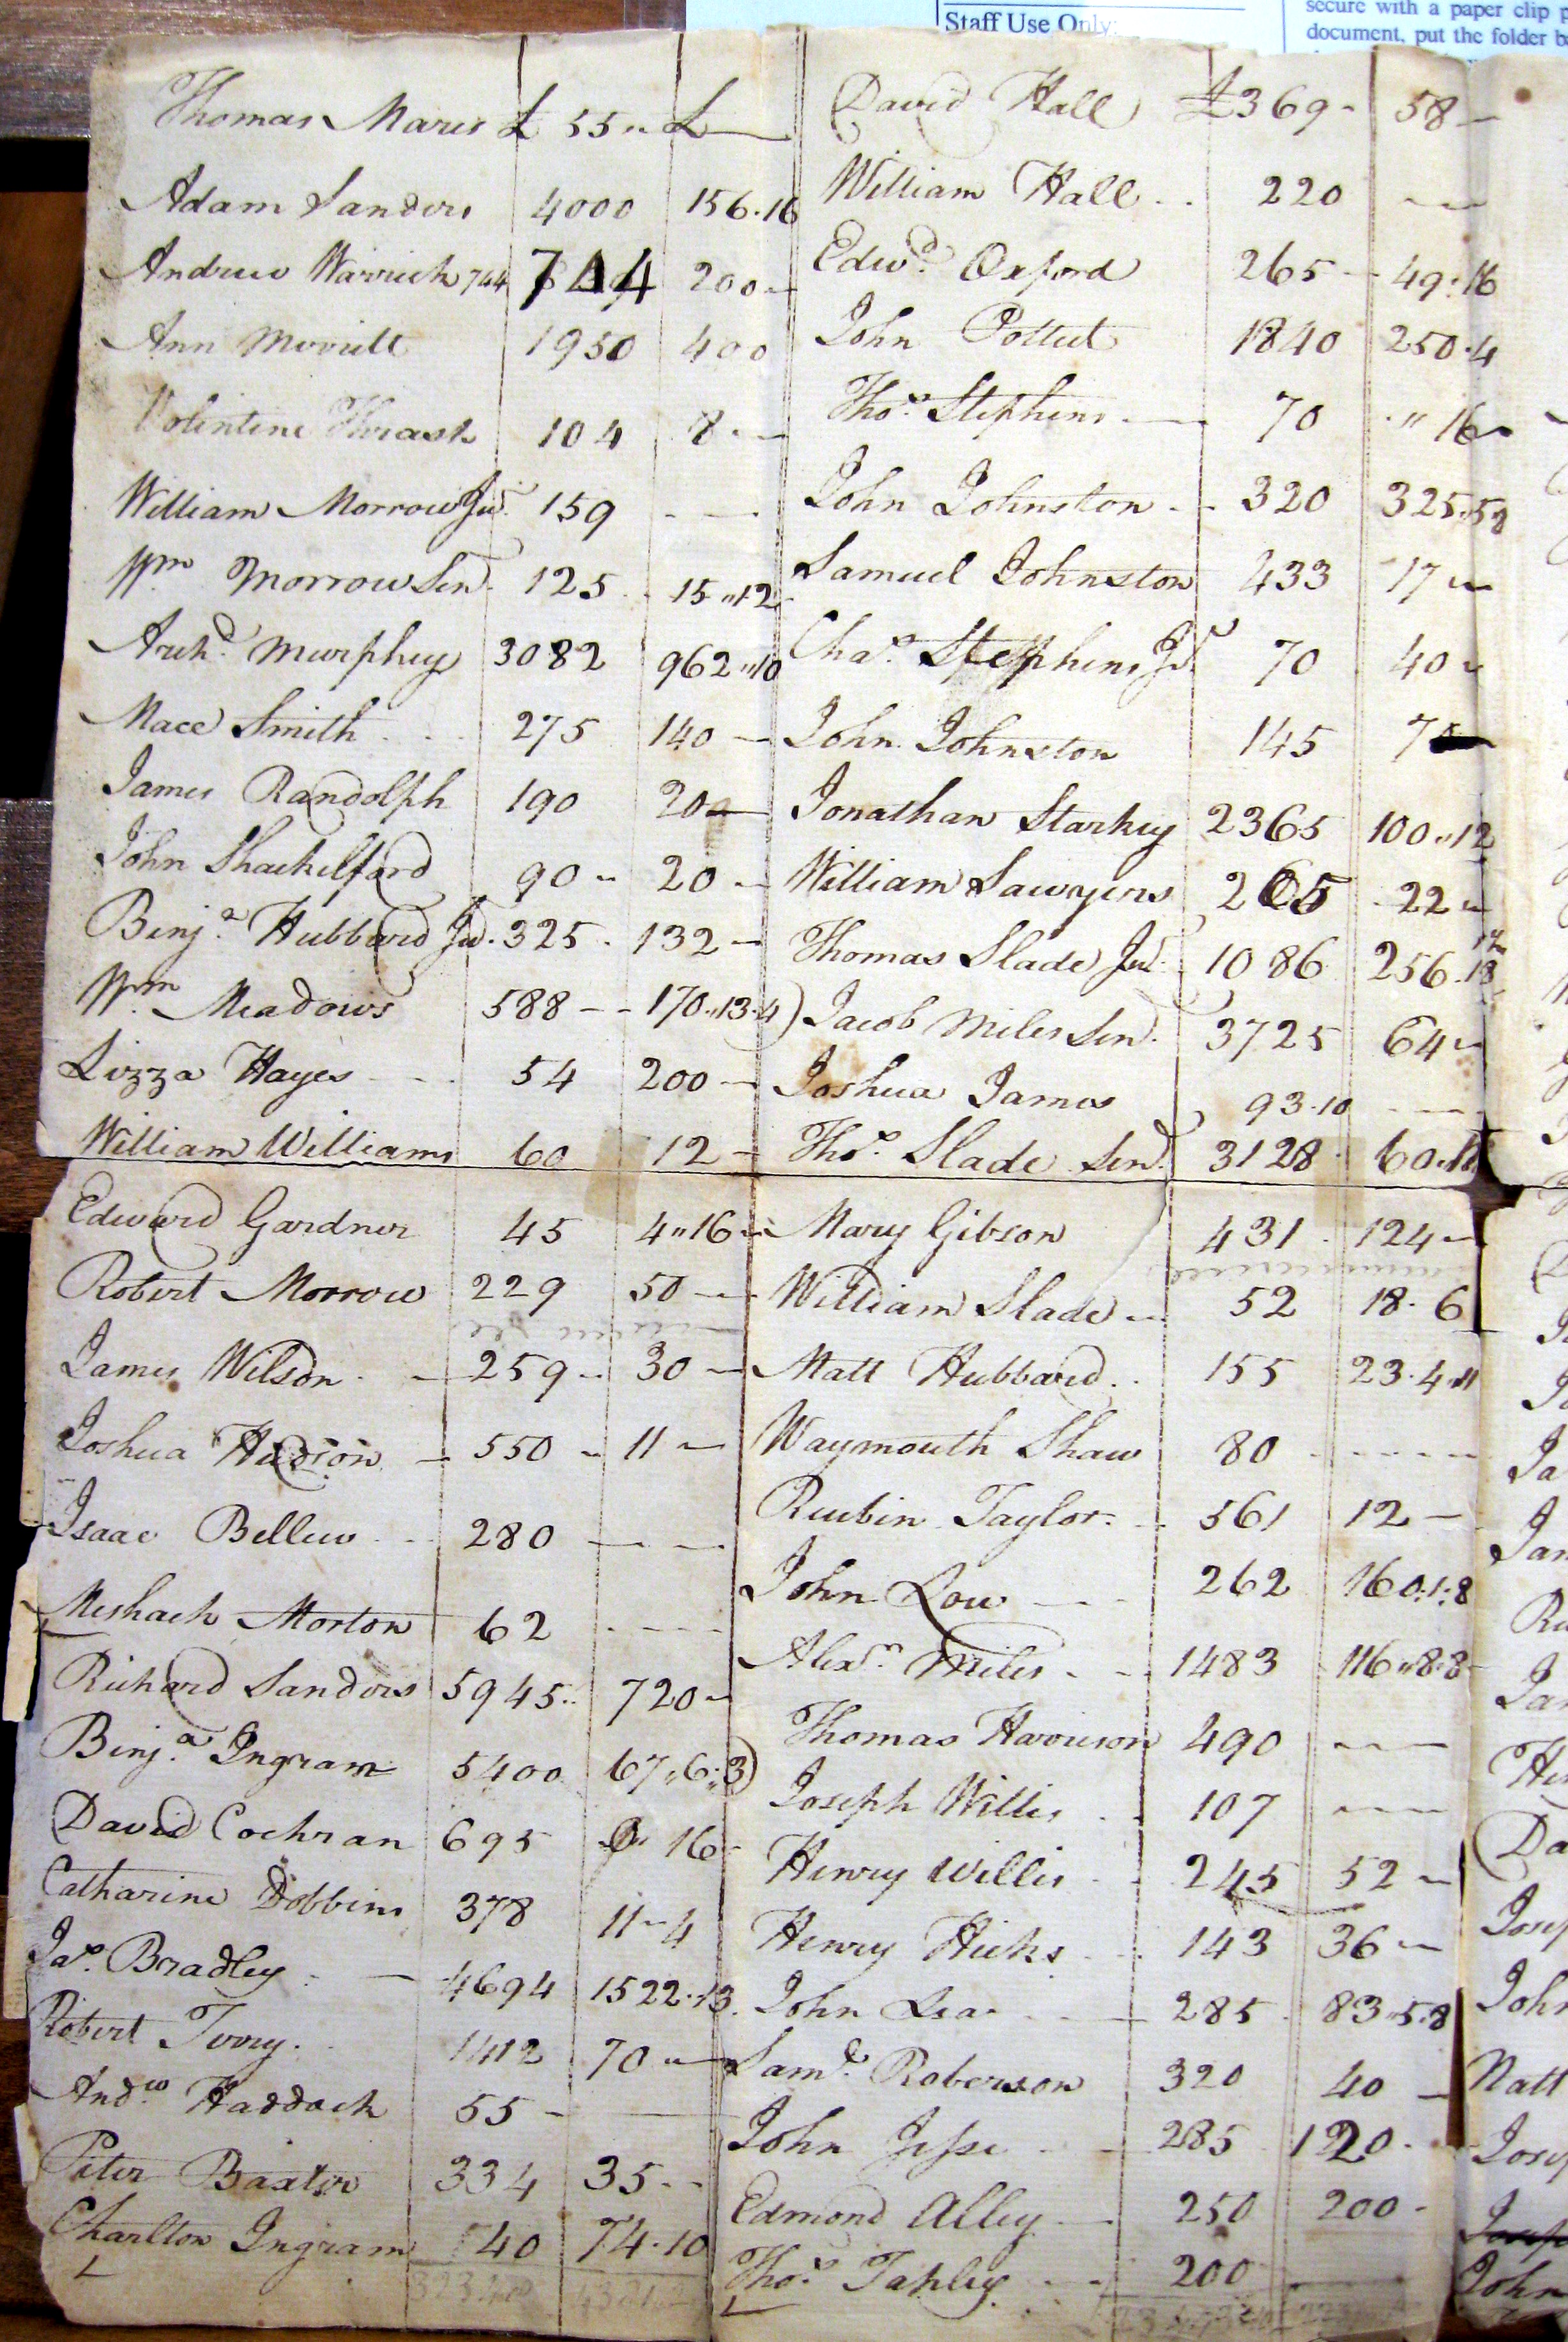 Staff Use Only:
secure with a paper clip
document, put the folder
Thomas Mares £ 55 „ £ —
Adam Sanders 4000 156.16
Andrew Warrick 744 744 200 —
Ann Merritt 1950 400
Volintine Thrash 104 8 . —
William Morrow Jur. 159 - —
Wm Morrow Sen. 125 15 „ 12
Archd. Murphey 3082 962 „ 10
Mace Smith 275 140 —
James Randolph 190 200 —
John Shackelford 90 „ 20 —
Benja. Hubbard Jur. 325 . 132 —
Wm. Meadows 588 - - 170 „ 13.4
Lizza Hayes 54 200 —
William Williams 60 12 —
Edward Gardner 45 4 „ 16 —
Robert Morrow 229 50 —
James Wilson — 259 „ 30 —
Joshua Hudson — 550 „ 11 —
Isaac Bellew 280 — —
Meshach Morton 62 - - - -
Richard Sanders 5945 „ 720 —
Benja. Ingram 5400 67 „ 6 „ 3
David Cochran 695 16 -
Catharine Dobbins 378 11 - 4
Jas. Bradley — 4694 1522 . 13
Robert Terry 1412 70 —
Andw. Haddock 55 - —
Peter Baxter 334 35 - -
Charlton Ingram 740 74.10
David Hall £369 - 58 —
William Hall . . 220 —
Edwd. Oxford 265 - 49 : 16
John Pottut 1840 250.4
Thos. Stephens — 70 „ 16
John Johnston - 320 325 „ 5
Samuel Johnston 433 17 —
Chas. Stephens Jr. 70 40 —
John Johnston 145
Jonathan Starkey 2365 100 „ 12
William Sawyers 265 22 —
Thomas Slade Jur. 1086 256 . 18
Jacob Miles Sen. 3725 64 —
Joshua James 93.10 - - -
Thos. Slade Sen. 3128 60
Mary Gibson 431 . 124 —
William Slade — 52 18 . 6
Matt Hubbard . . 155 23 . 4
Waymouth Shaw 80 - - - -
Reubin Taylor . 561 12 —
John Low — 262 160 : 1 : 8
Alexr. Miles . - 1483 116 „ 8 : 8
Thomas Harrison 490 - - -
Joseph Willis . . 107 - - -
Henry Willis 245 52 —
Henry Hicks 143 36 —
John Lea — 285 . 83 „ 5 . 8
Saml. Roberson 320 40 —
John Jesse 285 120 .
Edmond Alley — 250 200 -
Thos. Tapley 200 —
Ja
Jan
Da
John
Natt
John